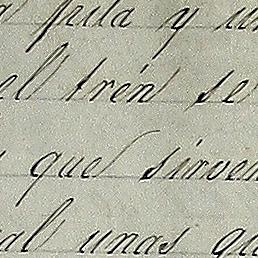 pila y un
el trén se
que sirven
al unas qu